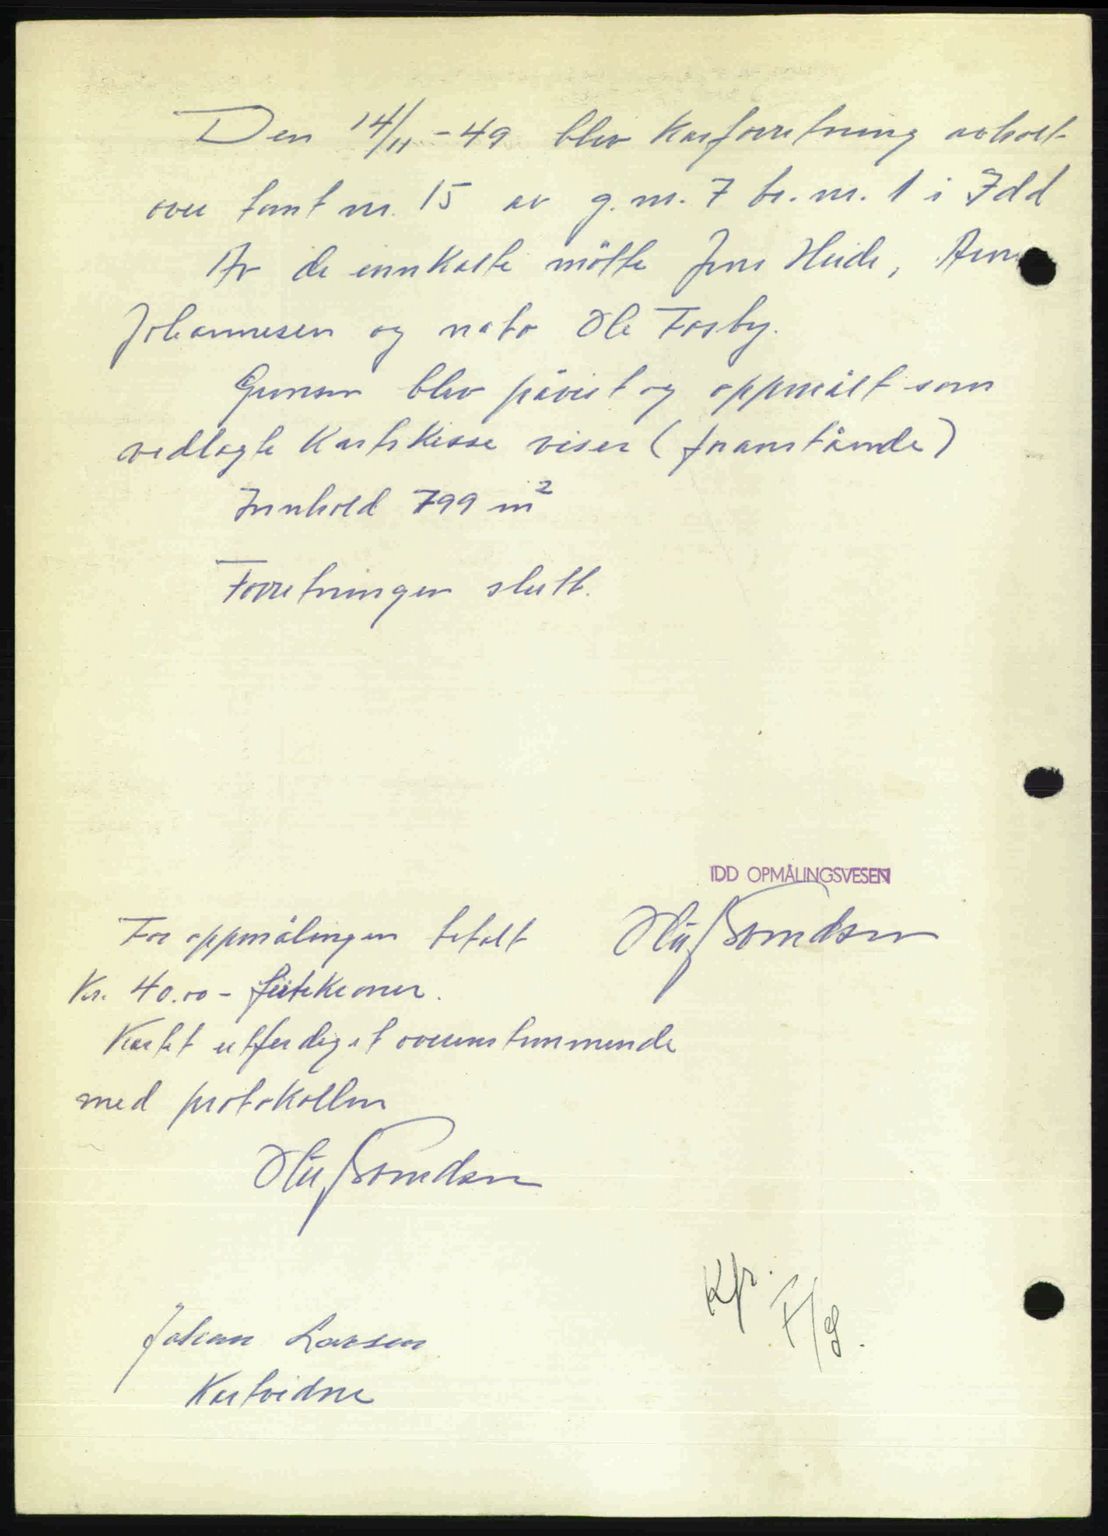 Den 14/11 - 49 blev Kartforretning avholdt
over tomt nr. 15 av g. nr. 7 br. nr. 1 i Idd
Av de innkalte mötte Jens Heide, Arne
Johannesen og nabo Ole Fosby.
Grensen blev påvist og oppmålt som
vedlagte Kartskisse viser (foranstående)
Innhold 799 m²
Forretningen slutt.
IDD OPMÅLINGSVESEN
For oppmålingen betalt
Kr. 40.00 - förtikroner.
Kartet utferdiget overenstemmende
med protokollen
Johan Larsen
Kartvidne
Kfr. F/g.